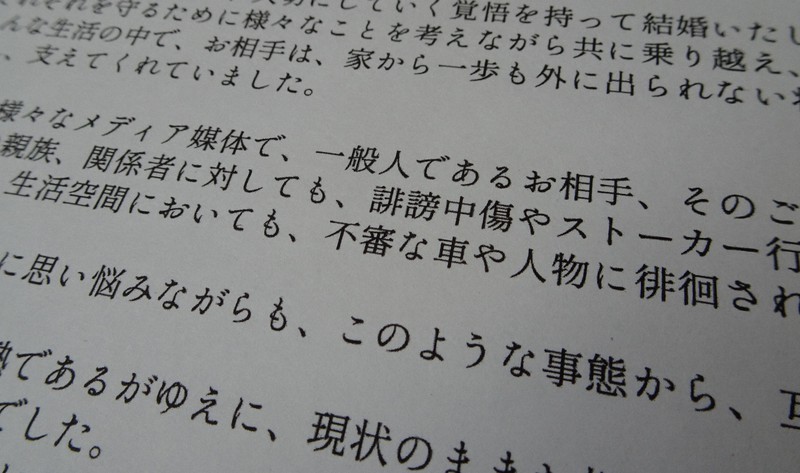 にしていく覚悟を持って結婚いたし
それを守るために様々なことを考えながら共に乗り越え、
んな生活の中で、お相手は、家から一歩も外に出られない
、支えてくれていました。
様々なメディア媒体で、一般人であるお相手、そのご
親族、関係者に対しても、誹謗中傷やストーカー行
生活空間においても、不審な車や人物に徘徊され
に思い悩みながらも、このような事態から、互
であるがゆえに、現状のまま
でした。